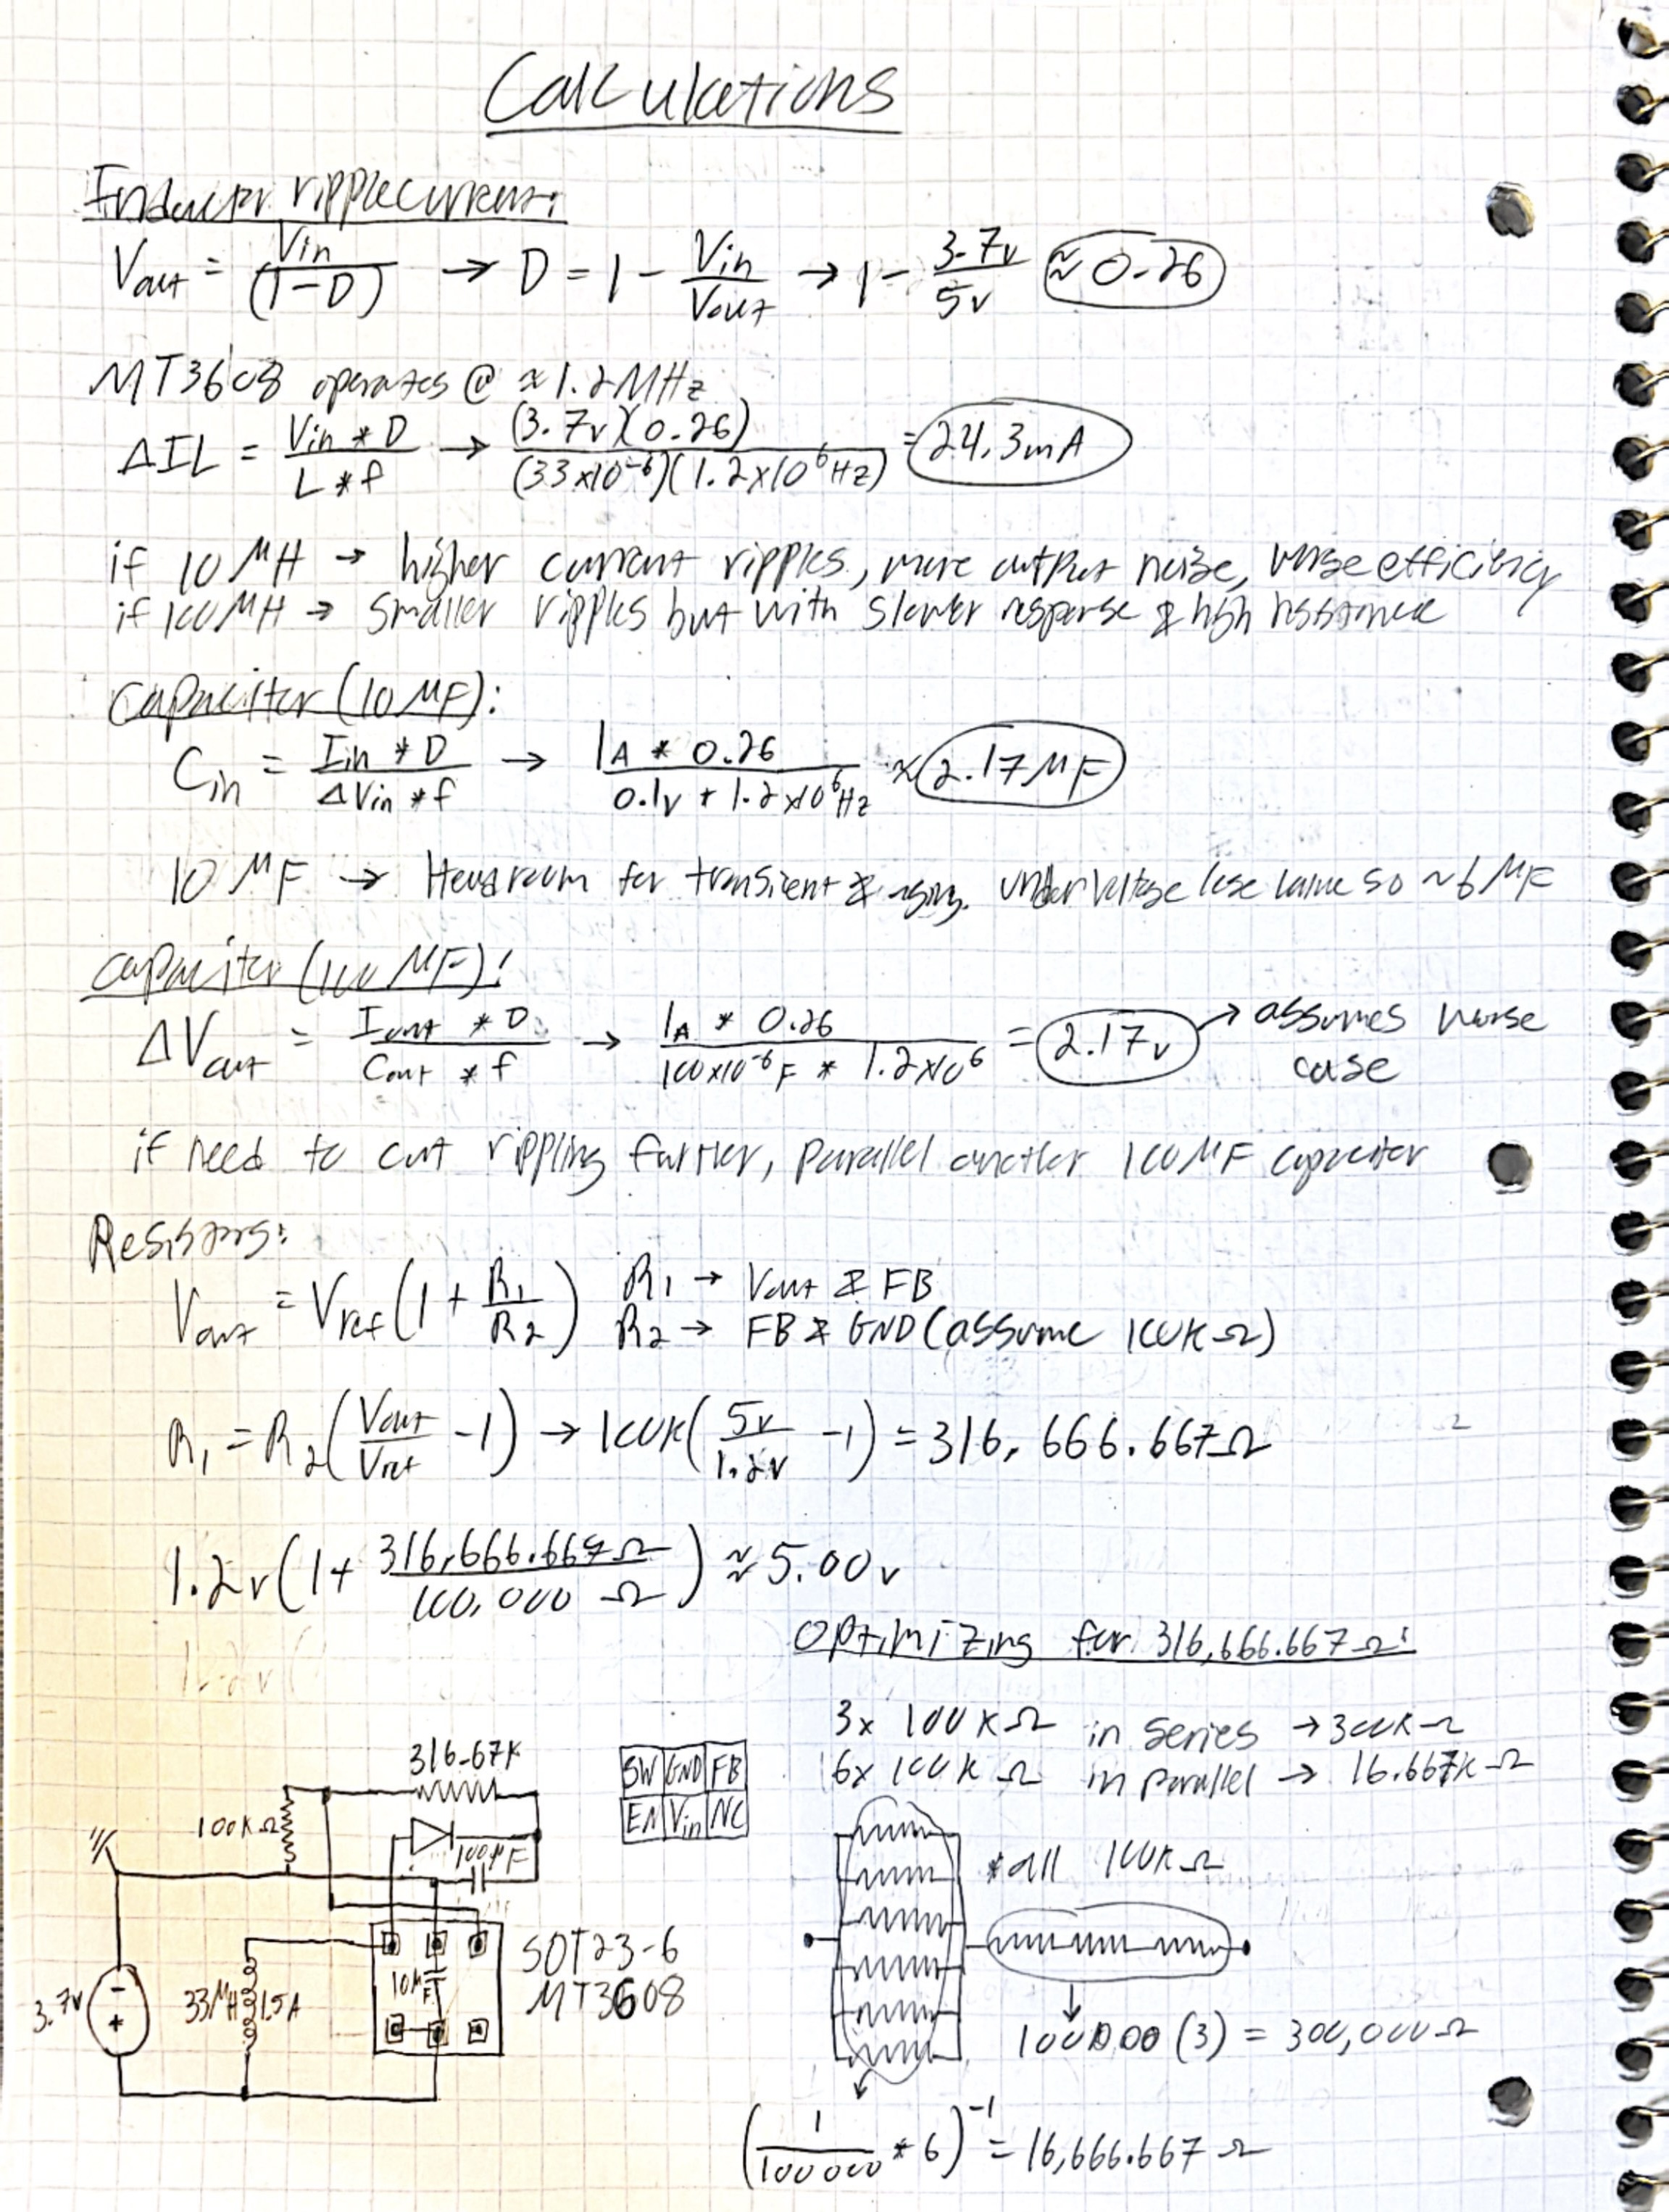 Calculations
Inductor ripple current:
Vout = Vin/(1-D) → D = 1 - Vin/Vout → 1 - 3.7v/5v ≈ 0.26
MT3608 operates @ ≈ 1.2MHz
ΔIL = Vin * D / L * f → (3.7v)(0.26) / (33x10^-6)(1.2x10^6 Hz) = 24.3mA
if 10 MH → higher current ripples, more output noise, worse efficiency
if 100MH → smaller ripples but with slower response & high resistance
Capacitor (10 MF):
Cin = Iin * D / ΔVin * f → 1A * 0.26 / 0.1v * 1.2x10^6 Hz ≈ 2.17MF
10 MF → Headroom for transient & aging. under voltage lose value so ~6 MF
Capacitor (100 MF):
ΔVout = Iout * D / Cout * f → 1A * 0.26 / 100x10^-6 F * 1.2x10^6 = 2.17v → assumes worse
case
if need to cut rippling further, parallel another 100MF capacitor
Resistors:
Vout = Vref(1 + R1/R2) R1 → Vout & FB
R2 → FB & GND (assume 100KΩ)
R1 = R2(Vout/Vref - 1) → 100K(5v/1.2v - 1) = 316,666.667Ω
1.2v(1 + 316,666.667Ω / 100,000 Ω) ≈ 5.00v
Optimizing for 316,666.667Ω:
3x 100KΩ in series → 300KΩ
6x 100K Ω in parallel → 16.667KΩ
316.67K
SW GND FB
EN Vin NC
100KΩ
100MF
*all 100KΩ
SOT23-6
MT3608
10MF
3.7v
- +
33MH 1.5A
100000 (3) = 300,000Ω
(1/100000 * 6)^-1 = 16,666.667 Ω